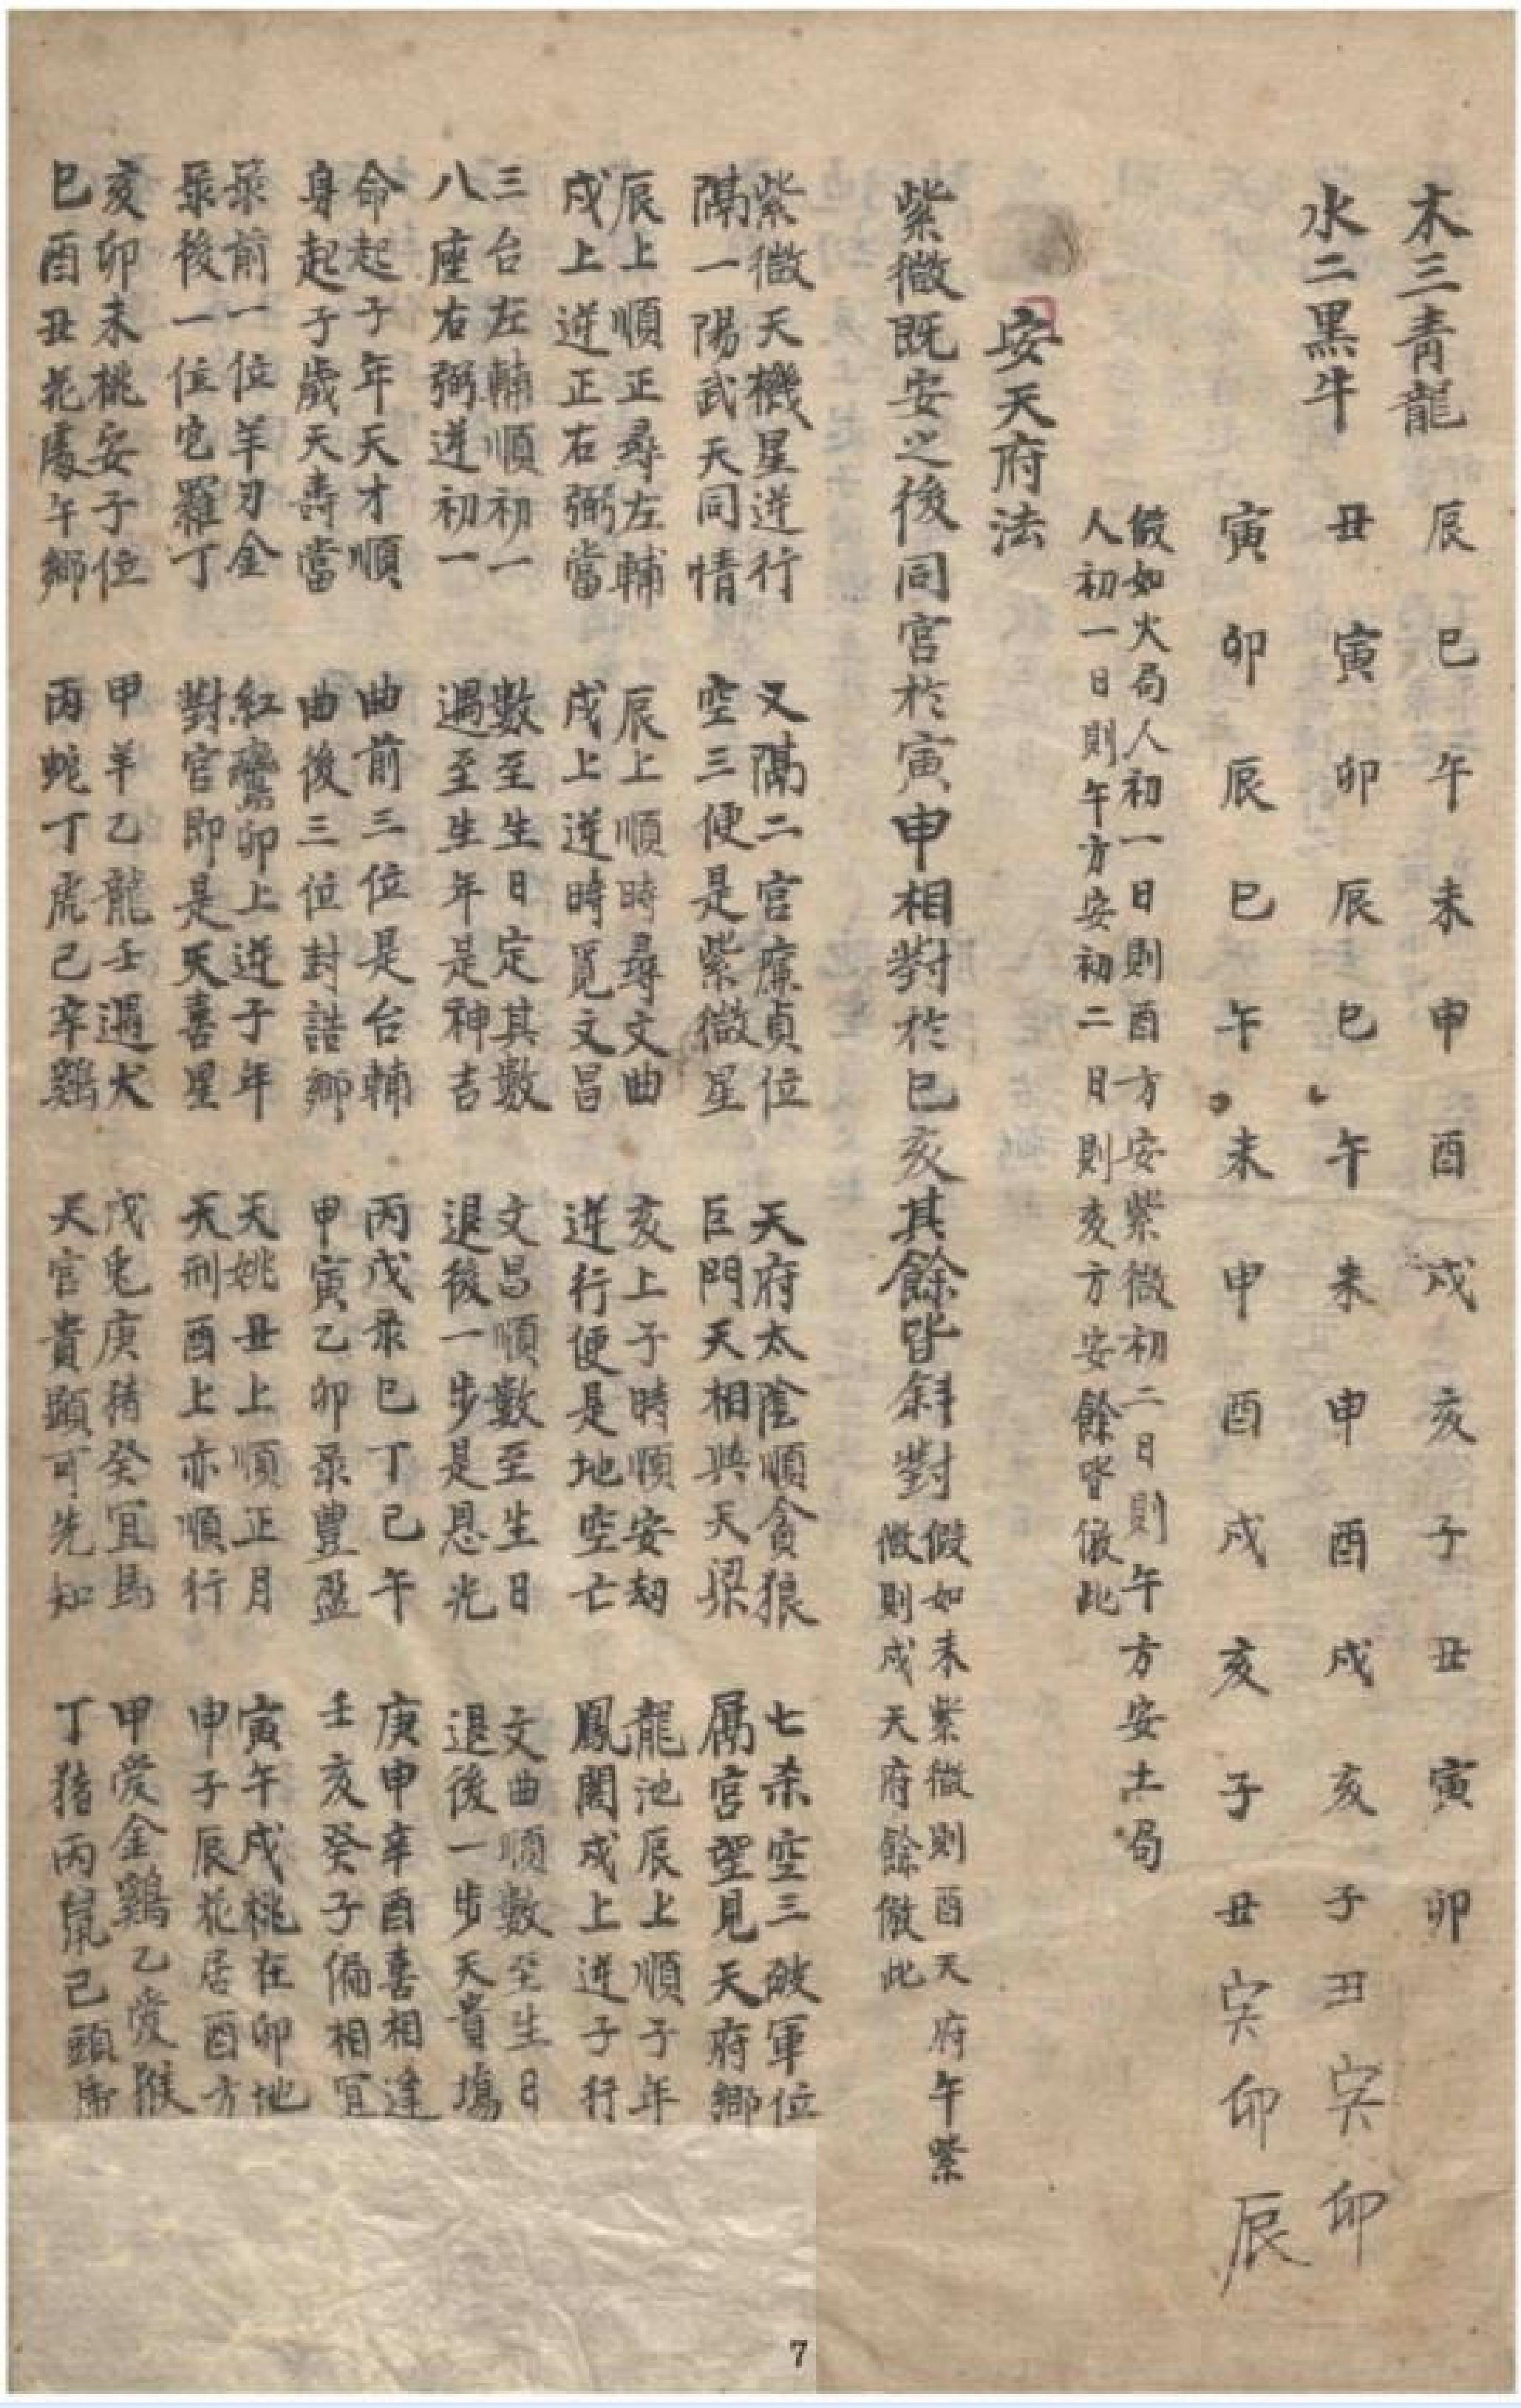 木三青龍　辰巳午未申酉戌亥子丑寅卯
水二黑牛　丑寅卯辰巳午未申酉戌亥子丑寅卯
寅卯辰巳午未申酉戌亥子丑寅卯辰
假如火局人初一日則酉方安紫微初二日則午方安土局
人初一日則午方安初二日則亥方安餘皆倣此
安天府法
紫微既安之後同宮於寅申相對於巳亥其餘皆斜對
假如未紫微則酉天府午紫
微則戌天府餘倣此
紫微天機星逆行　又隔二宮廉貞位　天府太陰順貪狼　七杀空三破軍位
隔一陽武天同情　空三便是紫微星　巨門天相與天梁　屬宮望見天府鄉
辰上順正尋左輔　辰上順時尋文曲　亥上子時順安刼　龍池辰上順子年
戌上逆正右弼當　戌上逆時覓文昌　逆行便是地空亡　鳳閣戌上逆子行
三台左輔順初一　數至生日定其數　文昌順數至生日　文曲順數至生日
八座右弼逆初一　遇至生年是神吉　退後一步是恩光　退後一步天貴塲
命起子年天才順　曲前三位是台輔　丙戊录巳丁己午　庚申辛酉喜相逢
身起子歲天壽當　曲後三位封誥鄉　甲寅乙卯录豐盈　壬亥癸子偏相宜
录前一位羊刃金　紅鸞卯上逆子年　天姚丑上順正月　寅午戌桃在卯地
录後一位它羅丁　對宮即是天喜星　天刑酉上亦順行　申子辰花居酉方
亥卯未桃安子位　甲羊乙龍壬遇犬　戊兎庚猪癸宜馬　甲愛金鷄乙愛猴
巳酉丑花處午鄉　丙蛇丁虎己辛鷄　天官貴顯可先知　丁猪丙鼠己頭
7